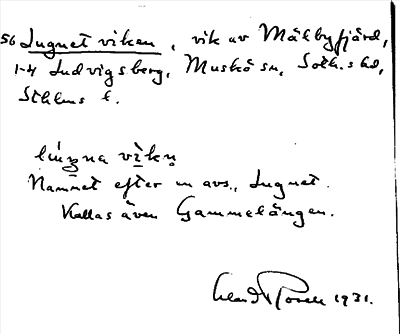 56 Lugnet viken, vik av Mälbyfjärd,
1-4 Ludvigsberg, Muskö sn, Soth.s hd,
Sthlms l.
Namnet efter en avs., Lugnet.
Kallas även Gammelängen.
1931.